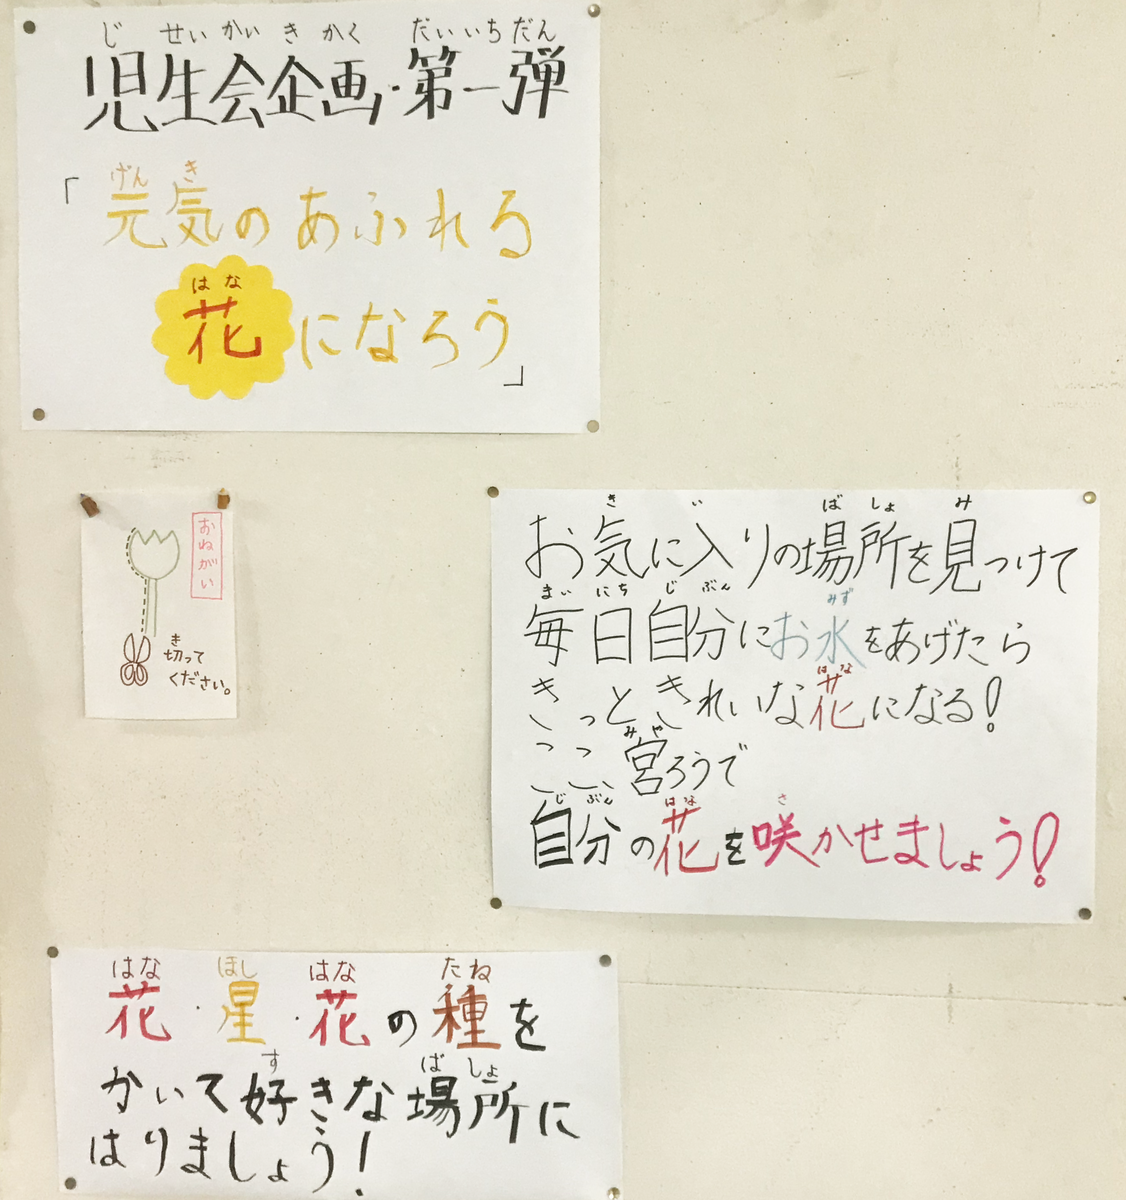 じ せい かい き かく だい いち だん
児生会企画・第一弾
げん き
「元気のあふれる
はな
花になろう」
おねがい
き
切って
ください。
き い ば しょ み
お気に入りの場所を見つけて
まい にち じ ぶん みず
毎日自分にお水をあげたら
はな
きっときれいな花になる!
みや
ここ宮ろうで
じ ぶん はな さ
自分の花を咲かせましょう!
はな ほし はな たね
花・星・花の種を
す ば しょ
かいて好きな場所に
はりましょう!